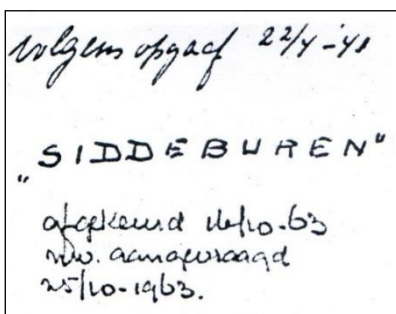 volgens opgaaf 22/4-41
„SIDDEBUREN"
afgekeurd 16/10-63
nw. aangevraagd
25/10-1963.